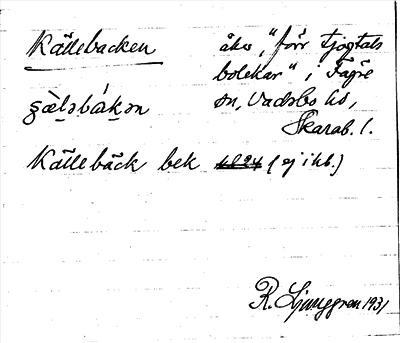 Källebacken åker, "förr Tjogtals
bolekar" i Fägre
sn, Vadsbo hd,
Skarab. l.
Källebäck bek 1824 (ej i kb.)
R. Ljunggren 1931